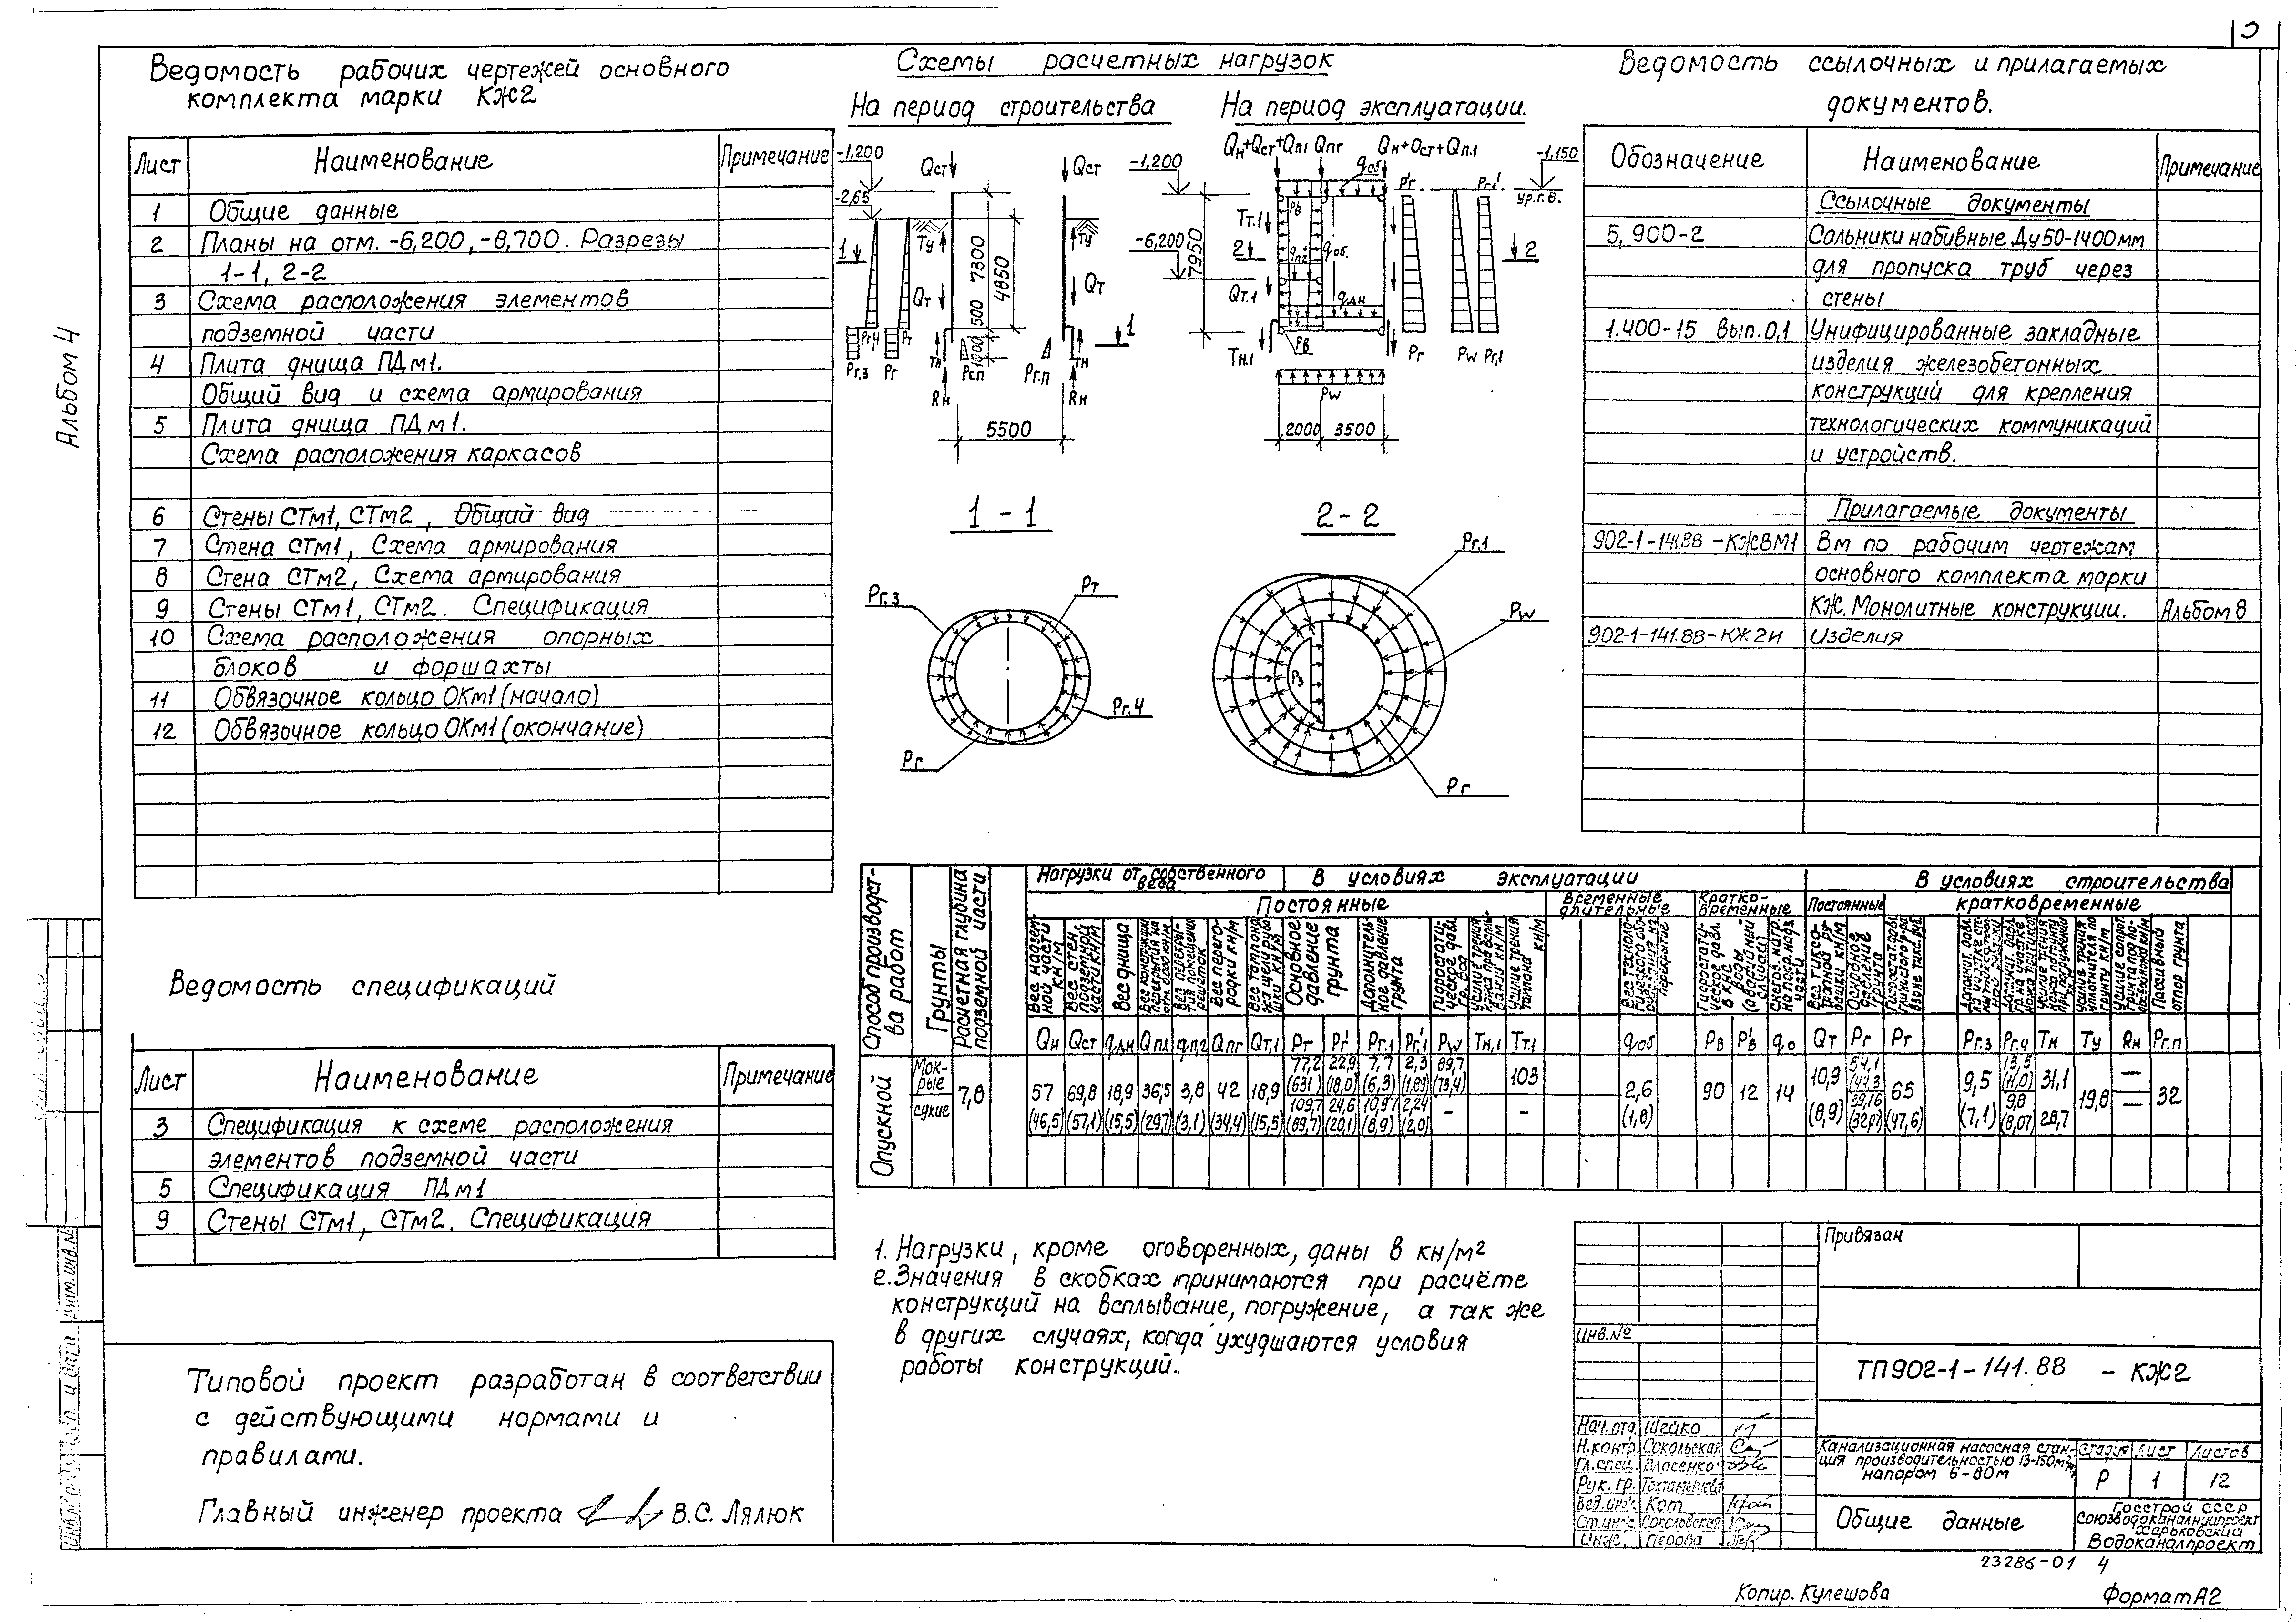 3
Альбом 4
Ведомость рабочих чертежей основного
комплекта марки КЖ2
Лист Наименование Примечание
1 Общие данные
2 Планы на отм. -6,200, -8,700. Разрезы
1-1, 2-2
3 Схема расположения элементов
подземной части
4 Плита днища ПДм1.
Общий вид и схема армирования
5 Плита днища ПДм1.
Схема расположения каркасов
6 Стены СТм1, СТм2, Общий вид
7 Стена СТм1, Схема армирования
8 Стена СТм2, Схема армирования
9 Стены СТм1, СТм2. Спецификация
10 Схема расположения опорных
блоков и форшахты
11 Обвязочное кольцо ОКм1 (начало)
12 Обвязочное кольцо ОКм1 (окончание)
Ведомость спецификаций
Лист Наименование Примечание
3 Спецификация к схеме расположения
элементов подземной части
5 Спецификация ПДм1
9 Стены СТм1, СТм2. Спецификация
Типовой проект разработан в соответствии
с действующими нормами и
правилами.
Главный инженер проекта В.С. Лялюк
Схемы расчетных нагрузок
На период строительства
-1,200
-2,65
Qст Qст
Tу Tу
1
Qт Qт
7300
4850
500
1000
1
Pг,3 Pг,4 Pг Pт
Tн Pс.п Pг.п Tн
Rн Rн
5500
На период эксплуатации.
Qн+Qст+Qп1 Qпг Qн+Qст+Qп.1
-1,200
-1,150
ур.г.в.
qоб
Pв
P'г Pг.1'
Tт.1
2 2
-6,200
7950
qп2 qоб.
Qт.1
qдн
Tн.1 Pв
Pг Pw Pг,1
Pw
2000 3500
1-1
Pг.3 Pт
Pг.4
Pг
2-2
Pг.1
Pw
P3
Pг
Ведомость ссылочных и прилагаемых
документов.
Обозначение Наименование Примечание
Ссылочные документы
5,900-2 Сальники набивные Ду50-1400мм
для пропуска труб через
стены
1.400-15 вып.0,1 Унифицированные закладные
изделия железобетонных
конструкций для крепления
технологических коммуникаций
и устройств.
Прилагаемые документы
902-1-141.88-КЖВМ1 Вм по рабочим чертежам
основного комплекта марки
КЖ. Монолитные конструкции. Альбом 8
902-1-141.88-КЖ2И Изделия
Способ производства работ
Грунты
Расчетная глубина подземной части
Нагрузки от собственного веса
В условиях эксплуатации
В условиях строительства
Постоянные
Временные длительные
Кратковременные
Постоянные
кратковременные
Вес наземной части кн/м
Вес стен подземной части кн/м
Вес днища
Вес перегородки кн/м
Основное давление грунта
Дополнительное давление грунта
Гидростатическое давл. гр. вод
Усилие трения тампона кн/м
Основное давление грунта
Пассивный отпор грунта
Qн Qст qдн Qп1 qп2 Qпг Qт,1 Pг Pг' Pг.1 Pг.1' Pw Tн,1 Tт.1 qоб Pв P'в qо Qт Pг Pт Pг.3 Pг.4 Tн Tу Rн Pг.п
Опускной
Мокрые
сухие
7,8
57 69,8 18,9 36,5 3,8 42 18,9
(46,5) (57,1) (15,5) (29,7) (3,1) (34,4) (15,5)
77,2 22,9 7,7 2,3 89,7
(63,1) (18,0) (6,3) (1,89) (73,4)
109,7 24,6 10,97 2,24 -
(89,7) (20,1) (8,9) (2,0)
103
-
2,6
(1,8)
90 12 14
10,9 54,1 65
(8,9) (44,3 39,16 (47,6)
9,5 13,5 31,1
(11,0)
(7,1) 9,8 28,7
(8,07)
19,8 — 32
—
1. Нагрузки, кроме оговоренных, даны в кн/м²
2. Значения в скобках принимаются при расчёте
конструкций на всплывание, погружение, а так же
в других случаях, когда ухудшаются условия
работы конструкций..
Привязан
Инв.№
ТП902-1-141.88 - КЖ2
Нач.отд. Шейко
Н.контр. Сокольская
Гл.спец. Власенко
Рук. гр. Тохтамышева
Вед.инж. Кот
Ст.инж. Соколовская
Инж. Перова
Канализационная насосная стан-
ция производительностью 13-150м³/ч
напором 6-80м
Стадия Лист Листов
Р 1 12
Общие данные
Госстрой СССР
Союзводоканалниипроект
Харьковский
Водоканалпроект
23286-01 4
Копир. Кулешова
Формат А2
Взам.инв.№